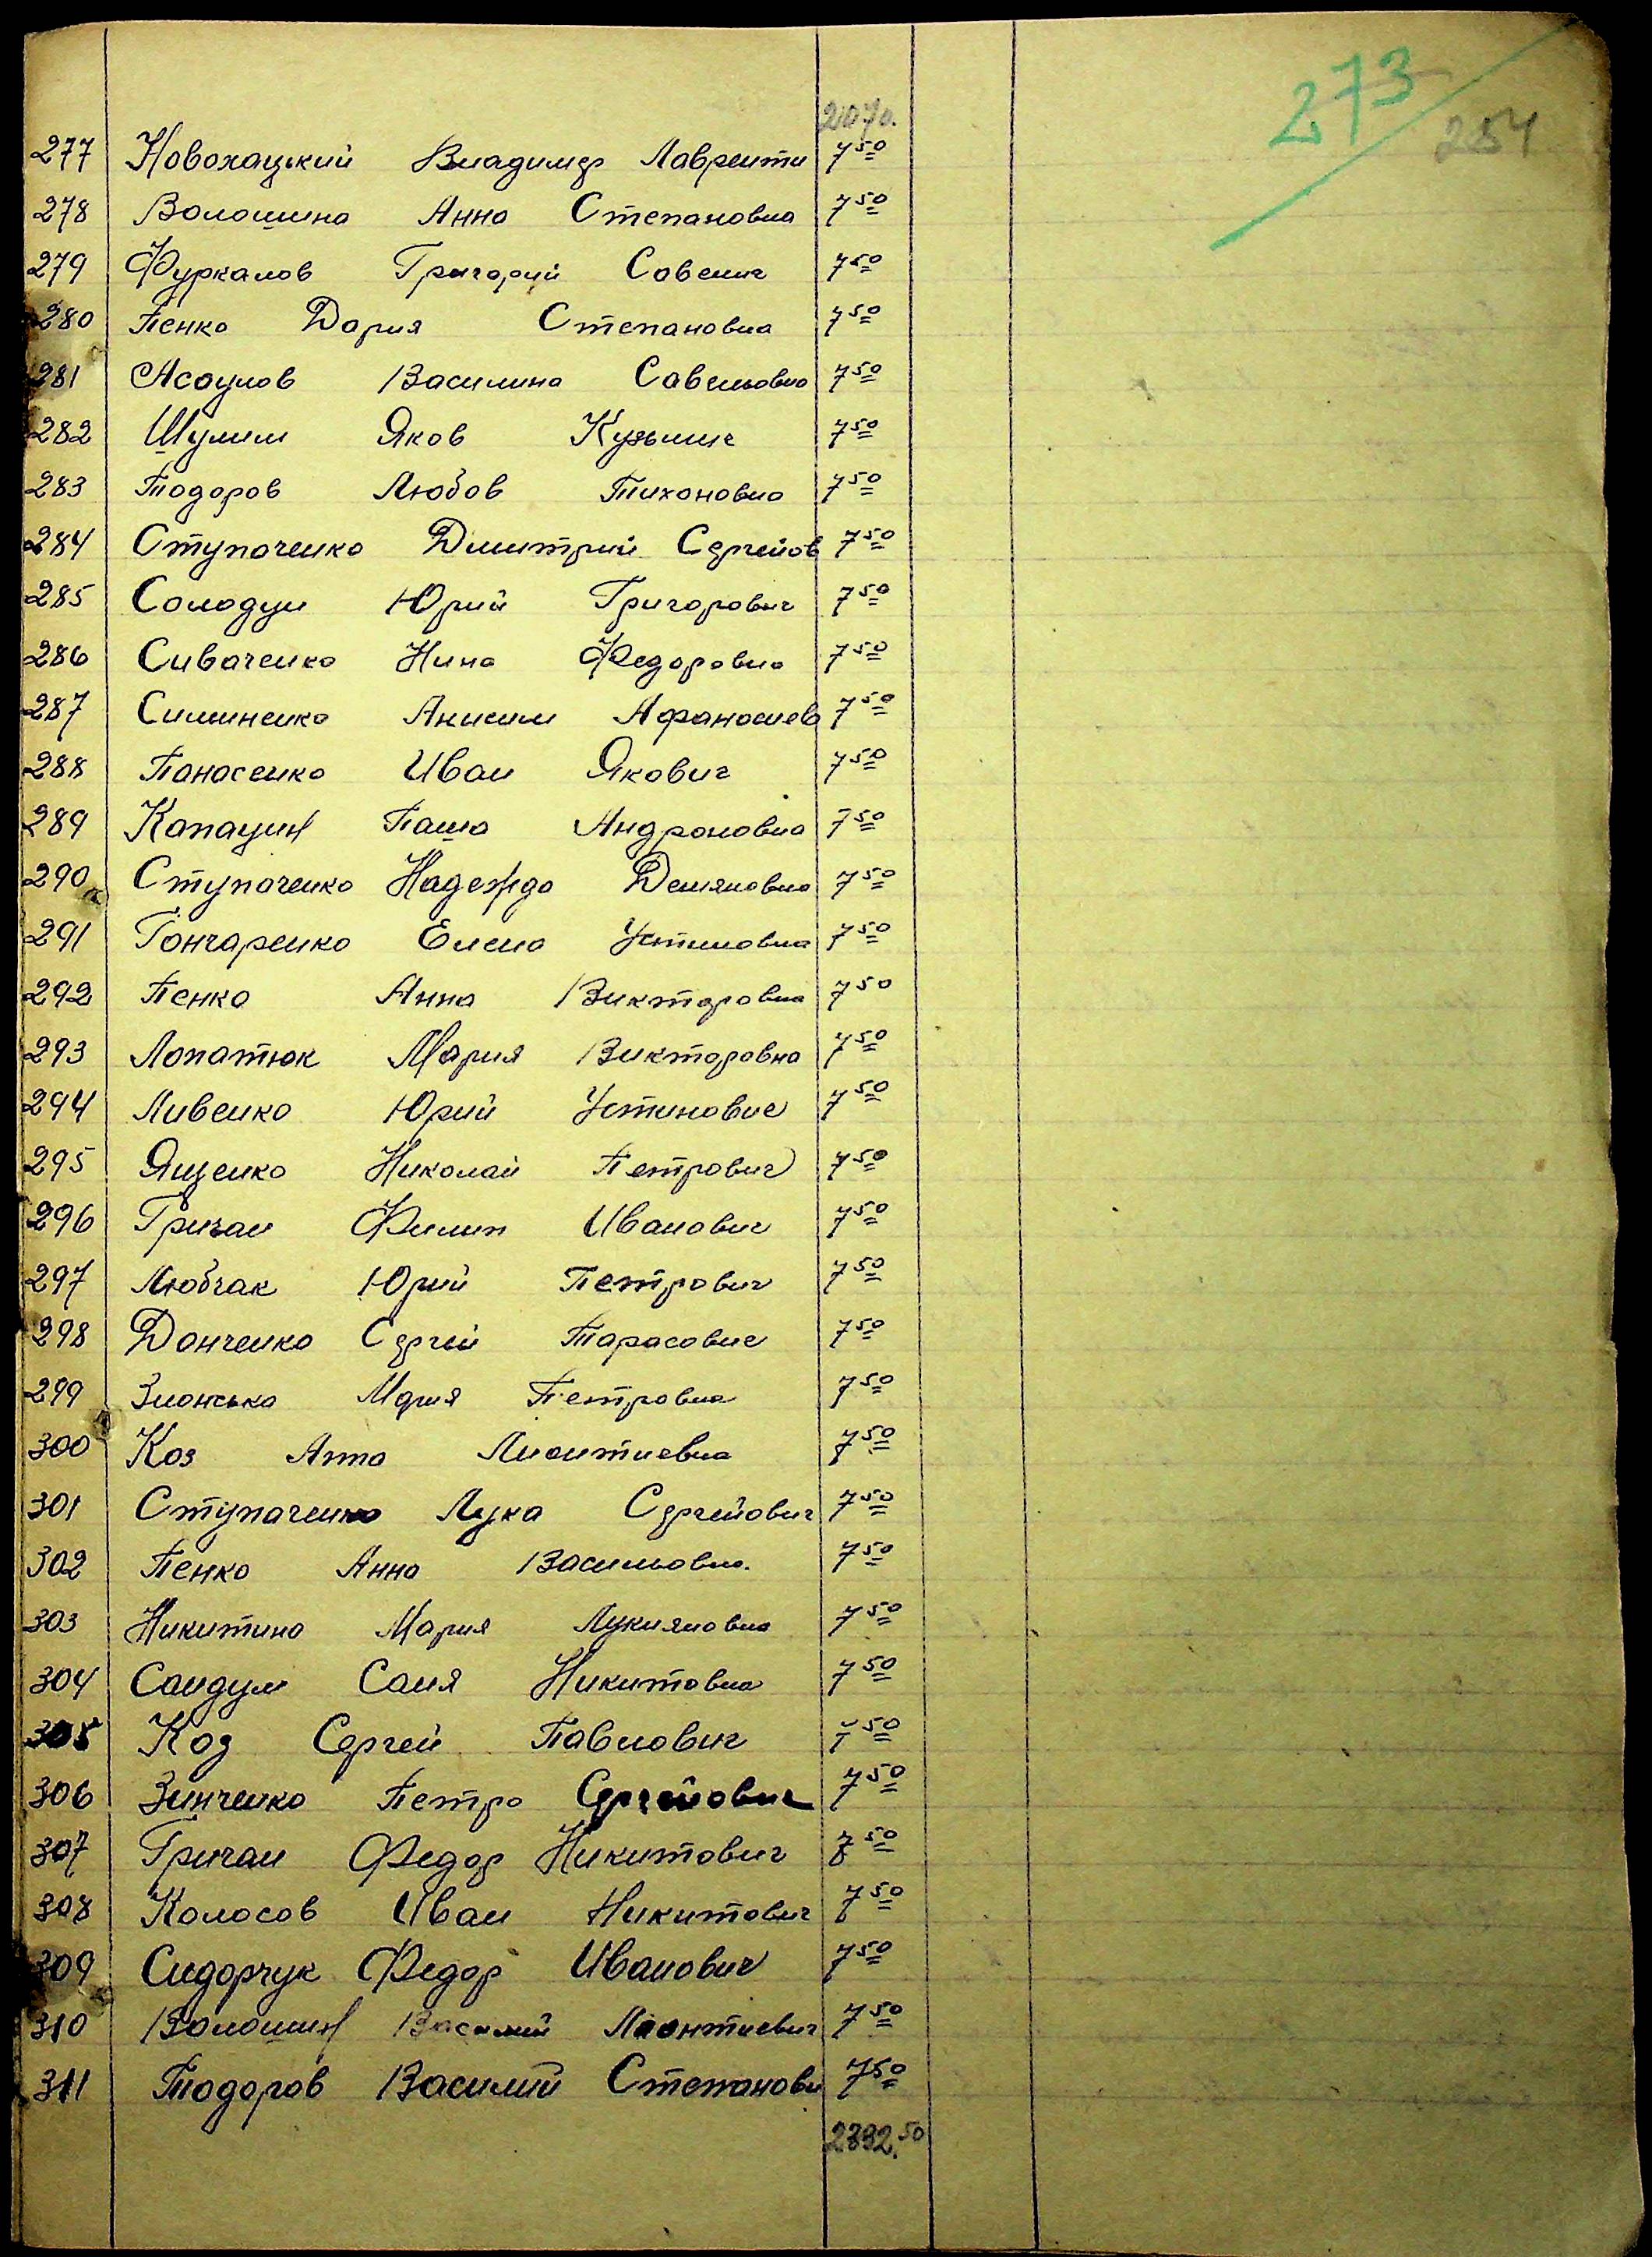 273
254
2070.
277 Новохацький Владимир Лавренти 7 50
278 Волошина Анна Степановна 7 50
279 Фуркалов Григорий Савелич 7 50
280 Пенко Дария Степановна 7 50
281 Асаулов Василина Савельовна 7 50
282 Шулим Яков Кузьмич 7 50
283 Тодоров Любов Тихоновна 7 50
284 Ступаченко Дмитрий Сергейов 7 50
285 Солодун Юрий Григорович 7 50
286 Сиваченко Нина Федоровна 7 50
287 Симиненко Анисим Афанасиев 7 50
288 Панасенко Иван Якович 7 50
289 Капацин Паша Андроновна 7 50
290 Ступаченко Надежда Демяновна 7 50
291 Гончаренко Елена Устиновна 7 50
292 Пенко Анна Викторовна 7 50
293 Лопатюк Мария Викторовна 7 50
294 Ливенко Юрий Устинович 7 50
295 Ященко Николай Петрович 7 50
296 Гричан Филип Иванович 7 50
297 Любчак Юрий Петрович 7 50
298 Донченко Сергей Тарасович 7 50
299 Мария Петровна 7 50
300 Коз Анна Лионтиевна 7 50
301 Ступаченко Лука Сергейович 7 50
302 Пенко Анна Васильовна. 7 50
303 Никитина Мария Лукияновна 7 50
304 Сандул Саня Никитовна 7 50
305 Коз Сергей Павлович 7 50
306 Зинченко Петро Сергейович 7 50
307 Гричан Федор Никитович 7 50
308 Колосов Иван Никитович 7 50
309 Сидорчук Федор Иванович 7 50
310 Волошин Василий Леонтиевич 7 50
311 Тодоров Василий Степанови 7 50
2332.50